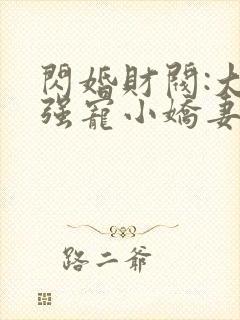 閃婚財閥:大
強寵小嬌妻
路二爺